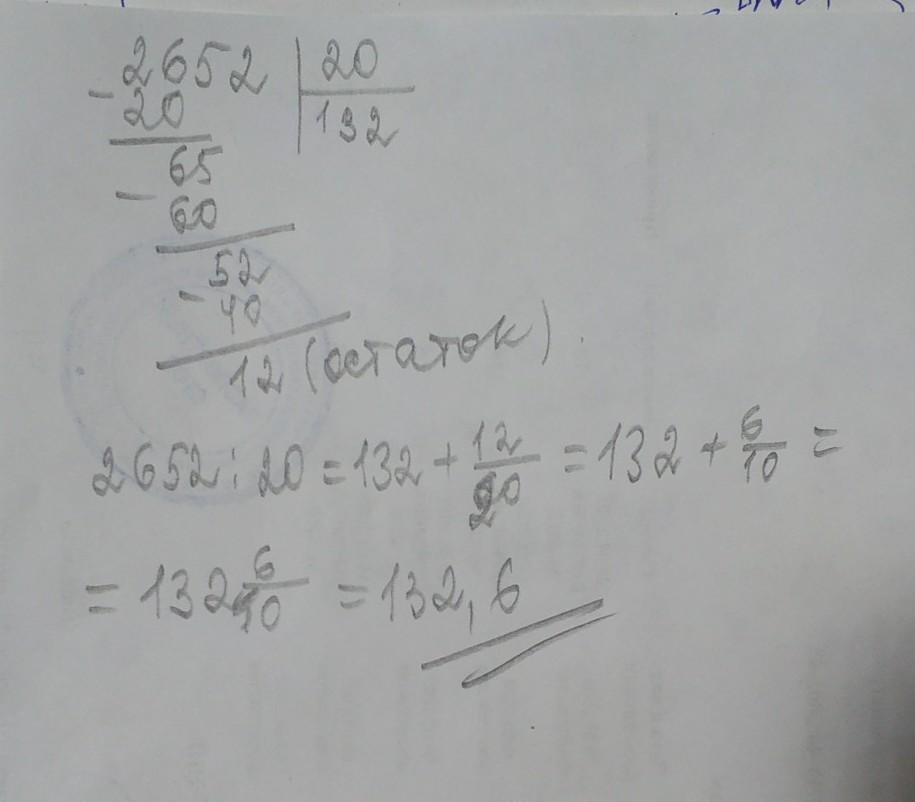 - 2652 | 20
20 | 132
- 65
60
- 52
40
12 (остаток).
2652 : 20 = 132 + 12/20 = 132 + 6/10 =
= 132 6/10 = 132,6